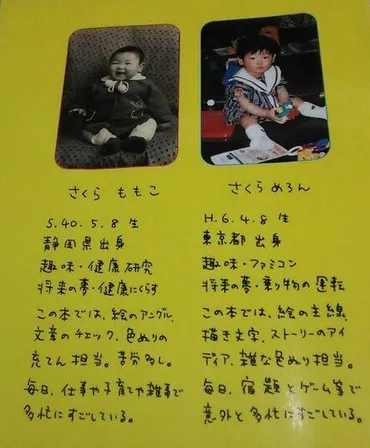 さくら ももこ
S.40.5.8 生
静岡県出身
趣味・健康研究
将来の夢・健康にくらす
この本では、絵のアングル、
文章のチェック、色ぬりの
充てん担当。苦労多し。
毎日、仕事や子育てや雑事で
多忙にすごしている。
さくら めろん
H.6.4.8 生
東京都出身
趣味・ファミコン
将来の夢・乗り物の運転
この本では、絵の主線、
描き文字、ストーリーのアイ
ディア、雑な色ぬり担当。
毎日、宿題とゲーム等で
意外と多忙にすごしている。